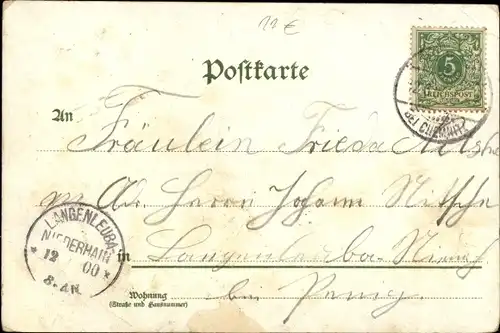 11 €
Postkarte
5
REICHSPOST
BEI CHEMNITZ
An
Fräulein Frieda
p. Ad. Herrn Johann Nitsche
LANGENLEUBA-
NIEDERHAIN
* 12 00 *
8-9N.
in Langenleuba-
Wohnung
(Straße und Hausnummer)
bei Penig.